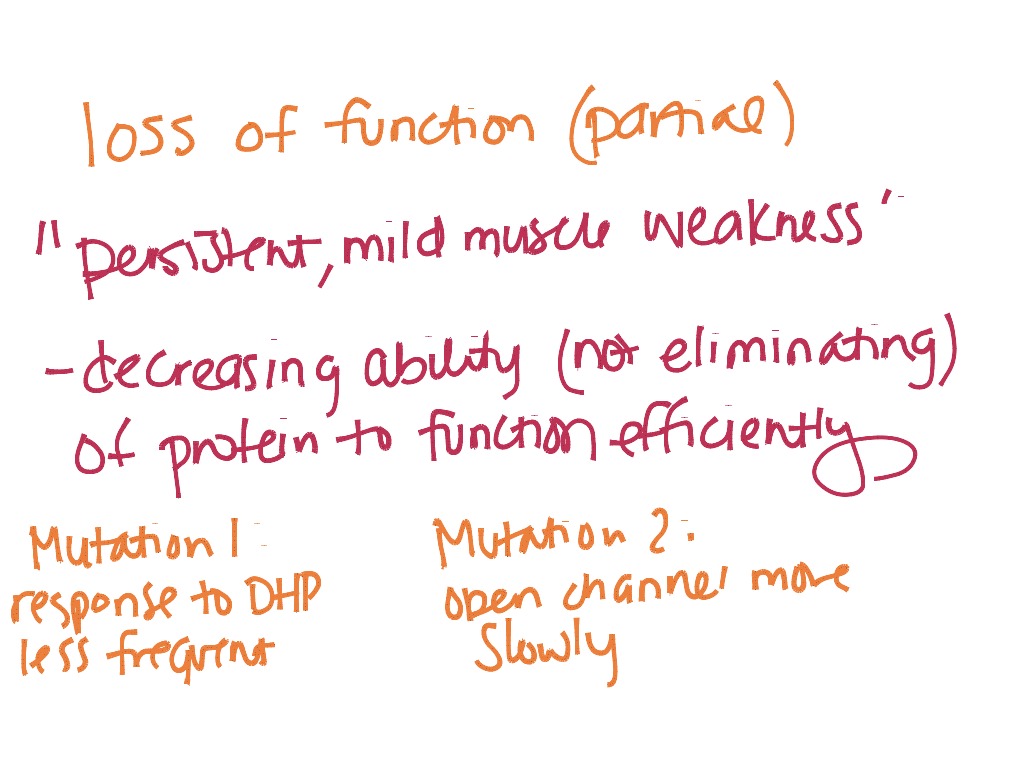 loss of function (partial)
"persistent, mild muscle weakness"
- decreasing ability (not eliminating)
of protein to function efficiently
Mutation 1:
response to DHP
less frequent
Mutation 2:
open channel more
slowly